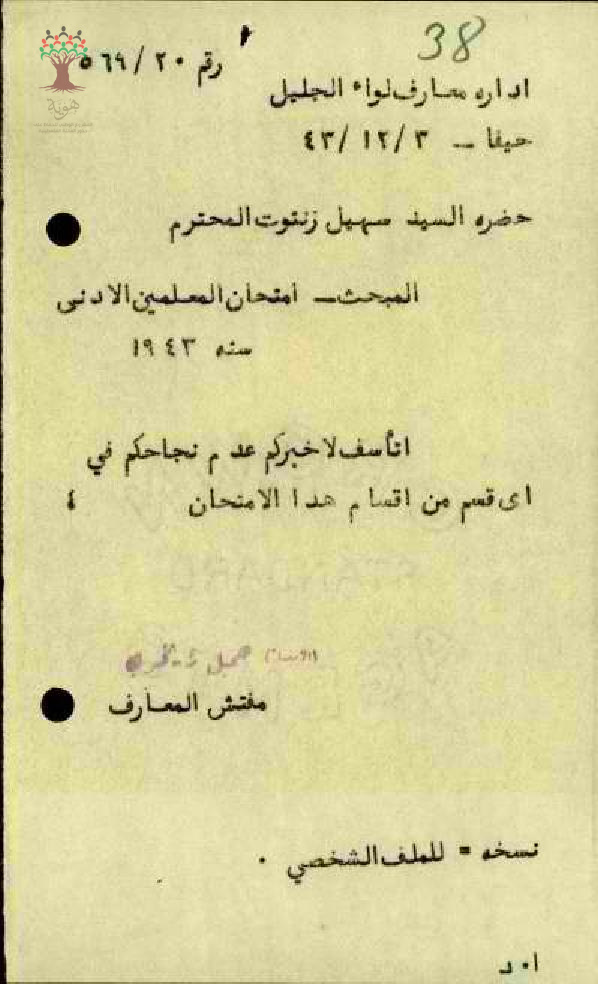 38
رقم ٢٠ / ٥٦٩
اداره معارف لواء الجليل
حيفا ــ ٣ /١٢ /٤٣
هوية
حضره السيد سهيل زنتوت المحترم
المبحث ــ امتحان المعلمين الادنى
سنه ١٩٤٣
اتأسف لاخبركم عدم نجاحكم في
اى قسم من اقسام هدا الامتحان ٤
مفتش المعارف
نسخه = للملف الشخصي .
ا٠ د